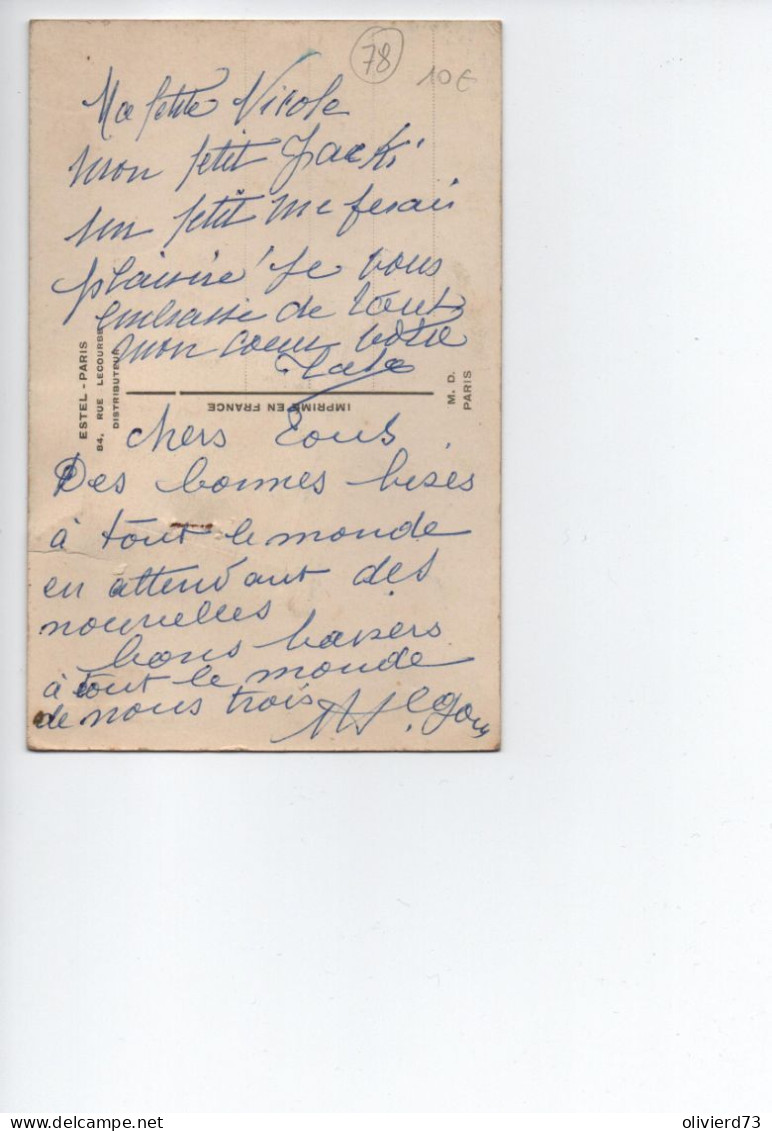 78
10€
Ma petite Nicole
mon petit Jacki
un petit me ferais
plaisire je vous
embrasse de tout
mon coeur votre
ESTEL - PARIS
84, RUE LECOURBE
DISTRIBUTEUR
IMPRIMÉ EN FRANCE
M. D.
PARIS
chers tous
Des bonnes bises
à tout le monde
en attendant des
nouvelles
bons baisers
à tout le monde
de nous trois
olivierd73